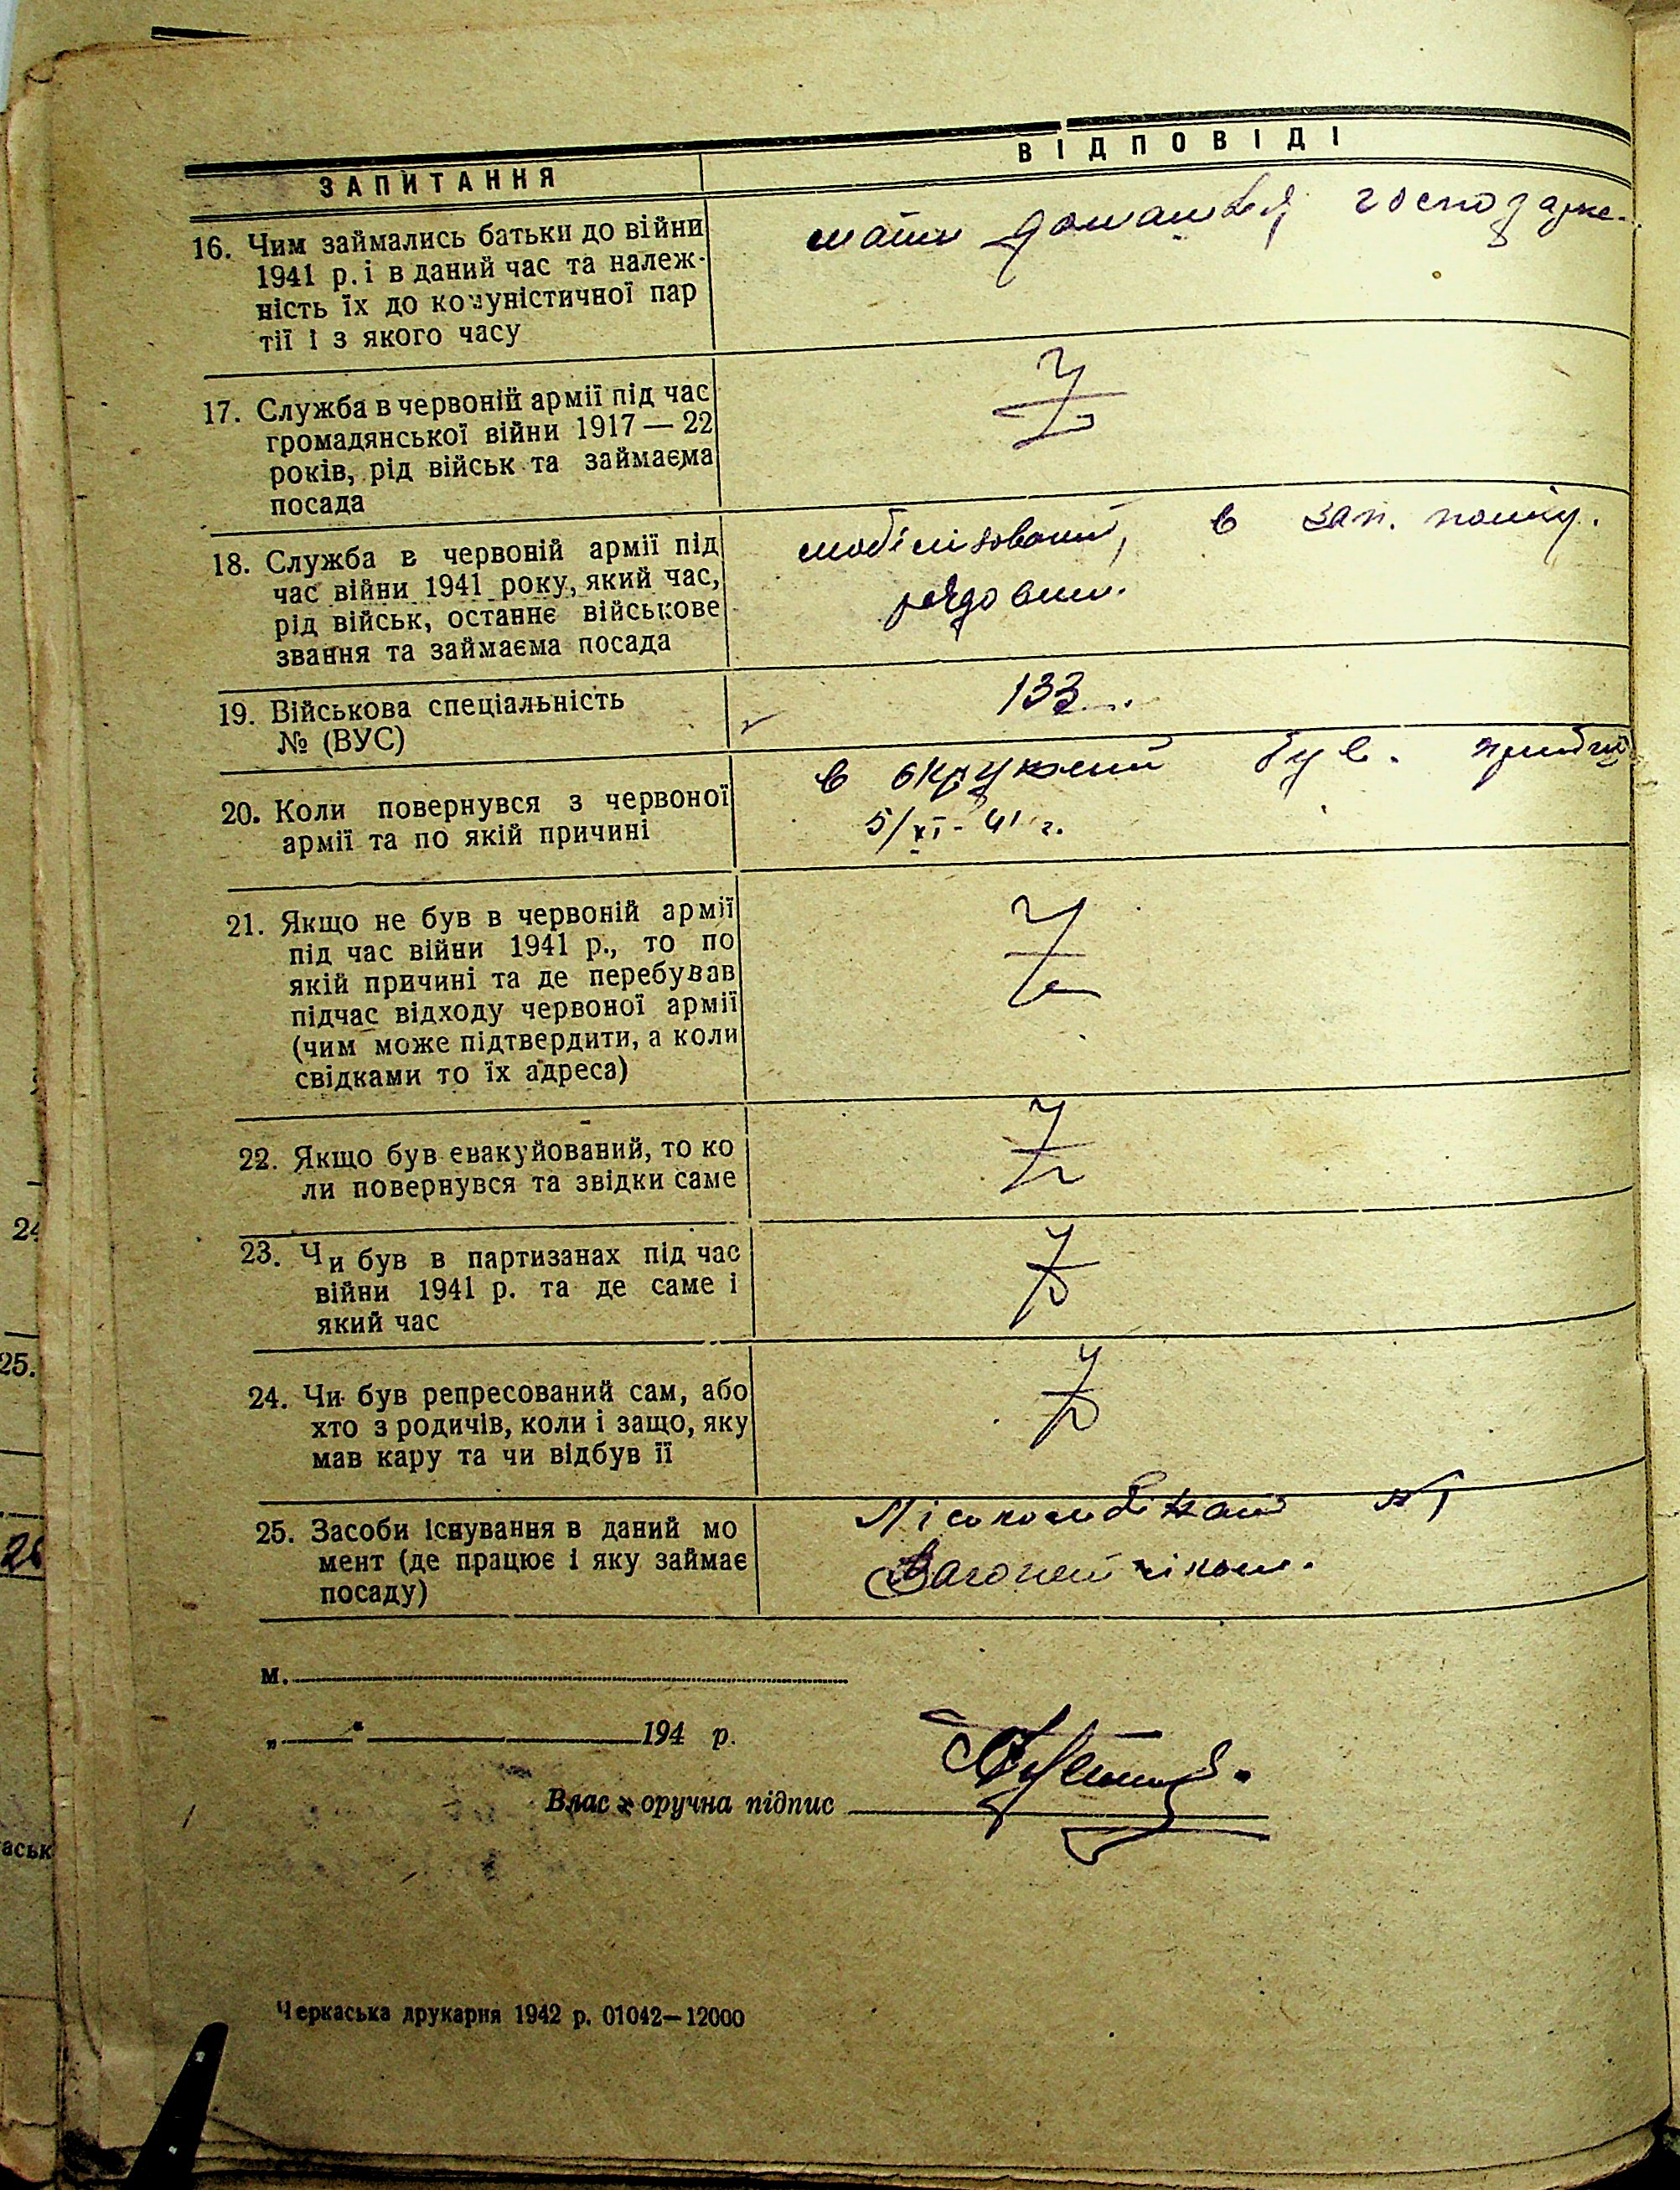 ЗАПИТАННЯ
ВІДПОВІДІ
16. Чим займались батьки до війни
1941 р. і в даний час та належ-
ність їх до комуністичної пар
тії і з якого часу
мати домашня господарк.
17. Служба в червоній армії під час
громадянської війни 1917 — 22
років, рід військ та займаєма
посада
18. Служба в червоній армії під
час війни 1941 року, який час,
рід військ, останнє військове
звання та займаєма посада
мобілізований, в зап. полку.
рядовим.
19. Військова спеціальність
№ (ВУС)
133
20. Коли повернувся з червоної
армії та по якій причині
в окружений був. прибув
5/XI-41 г.
21. Якщо не був в червоній армії
під час війни 1941 р., то по
якій причині та де перебував
підчас відходу червоної армії
(чим може підтвердити, а коли
свідками то їх адреса)
22. Якщо був евакуйований, то ко
ли повернувся та звідки саме
23. Чи був в партизанах під час
війни 1941 р. та де саме і
який час
24. Чи був репресований сам, або
хто з родичів, коли і защо, яку
мав кару та чи відбув її
25. Засоби існування в даний мо
мент (де працює і яку займає
посаду)
Лісокомбінат №1
Вагонетчіком.
м.
„ “ 194 р.
Власноручна підпис
Черкаська друкарня 1942 р. 01042—12000
24
25.
26
аськ